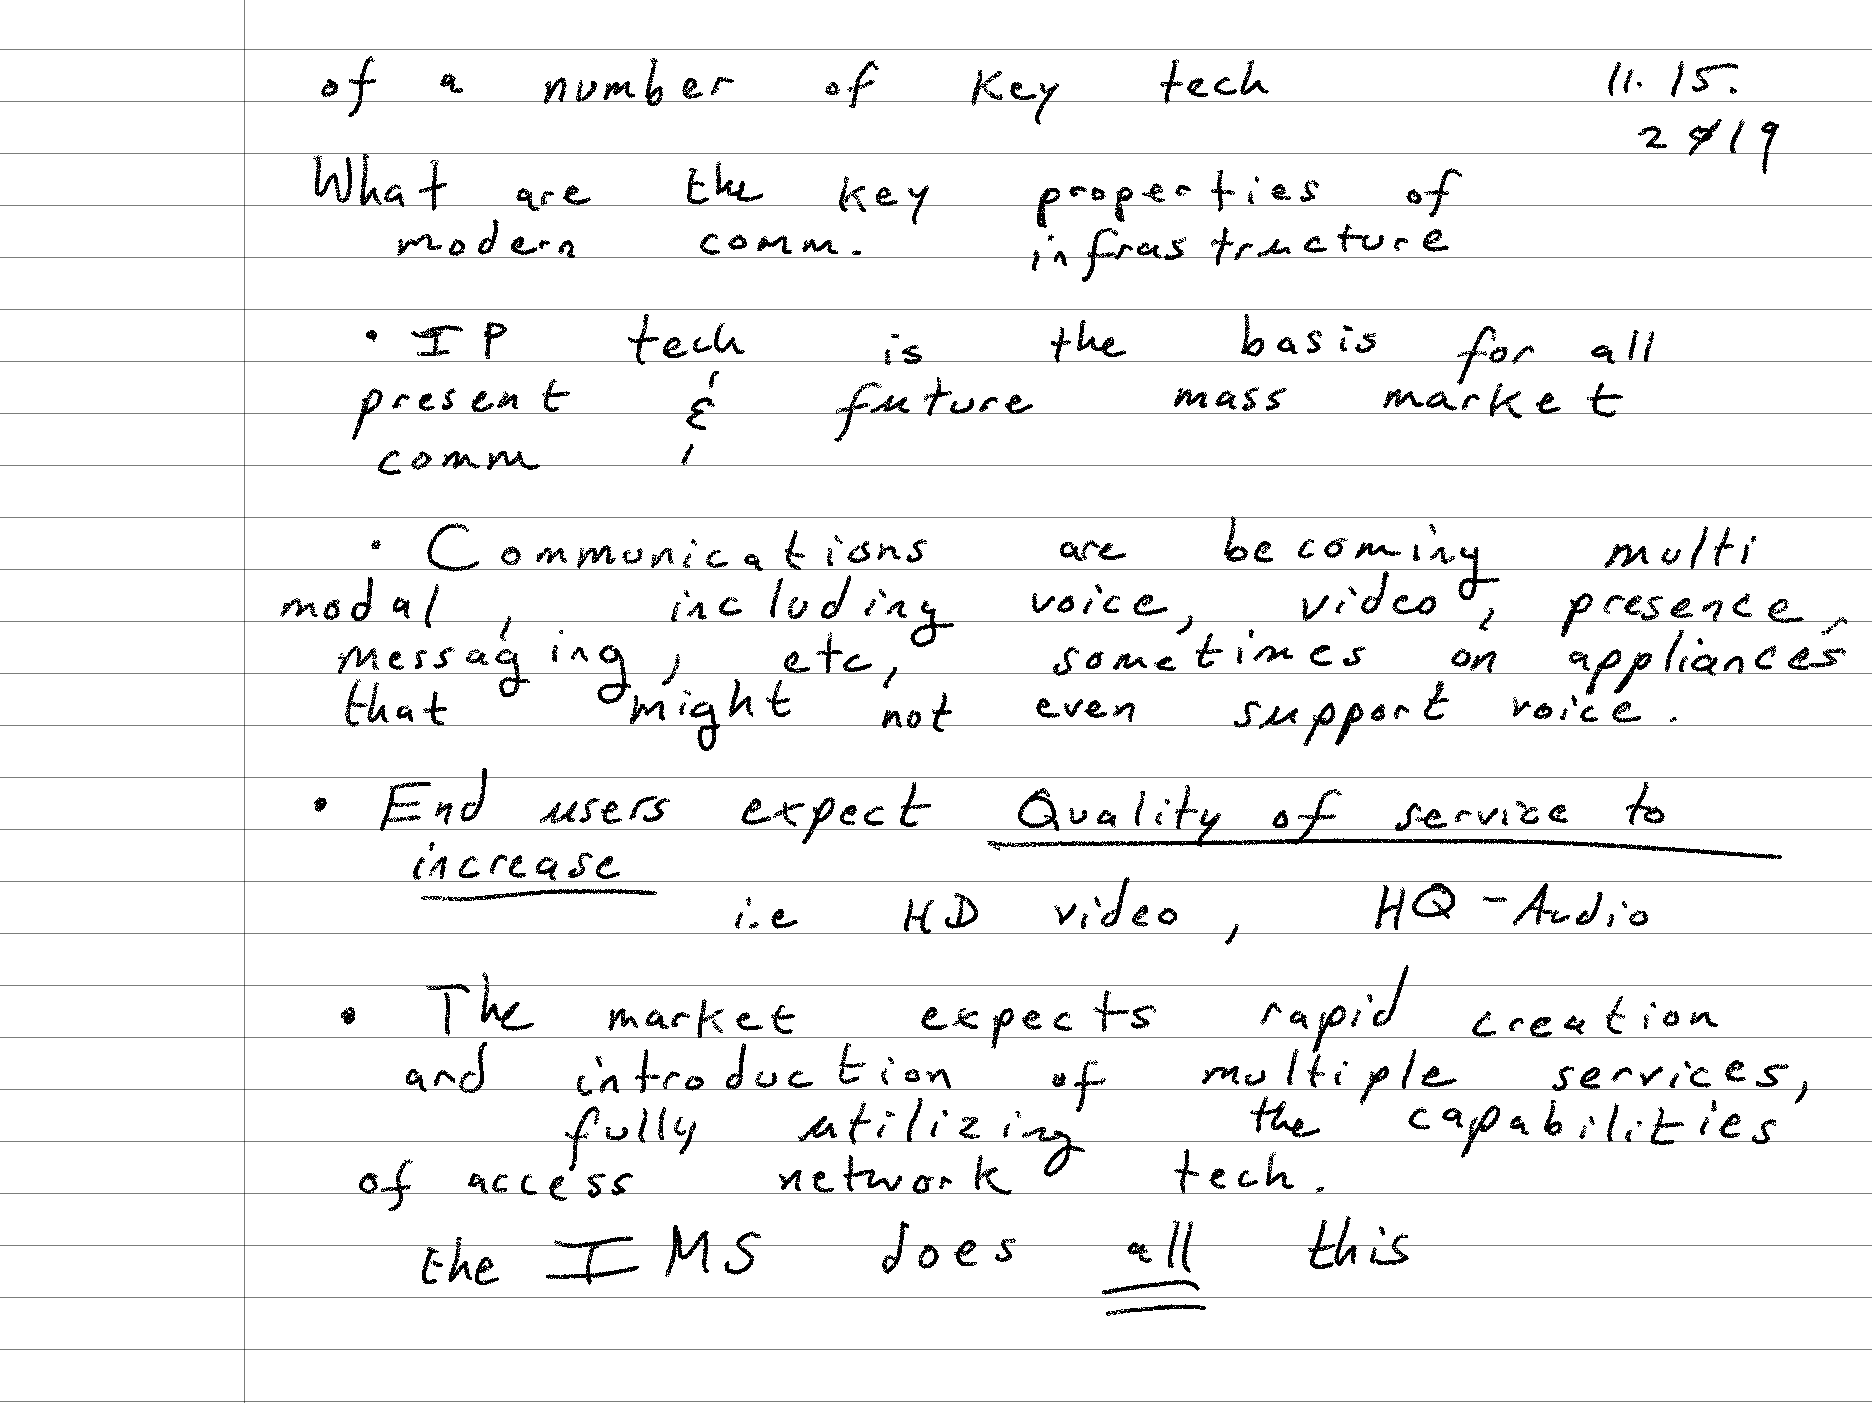 of a number of key tech 11.15.
2019
What are the key properties of
modern comm. infrastructure
• IP tech is the basis for all
present & future mass market
comm
• Communications are becoming multi
modal, including voice, video, presence,
messaging, etc, sometimes on appliances
that might not even support voice.
• End users expect Quality of service to
increase
i.e HD video, HQ-Audio
• The market expects rapid creation
and introduction of multiple services,
fully utilizing the capabilities
of access network tech.
the IMS does all this